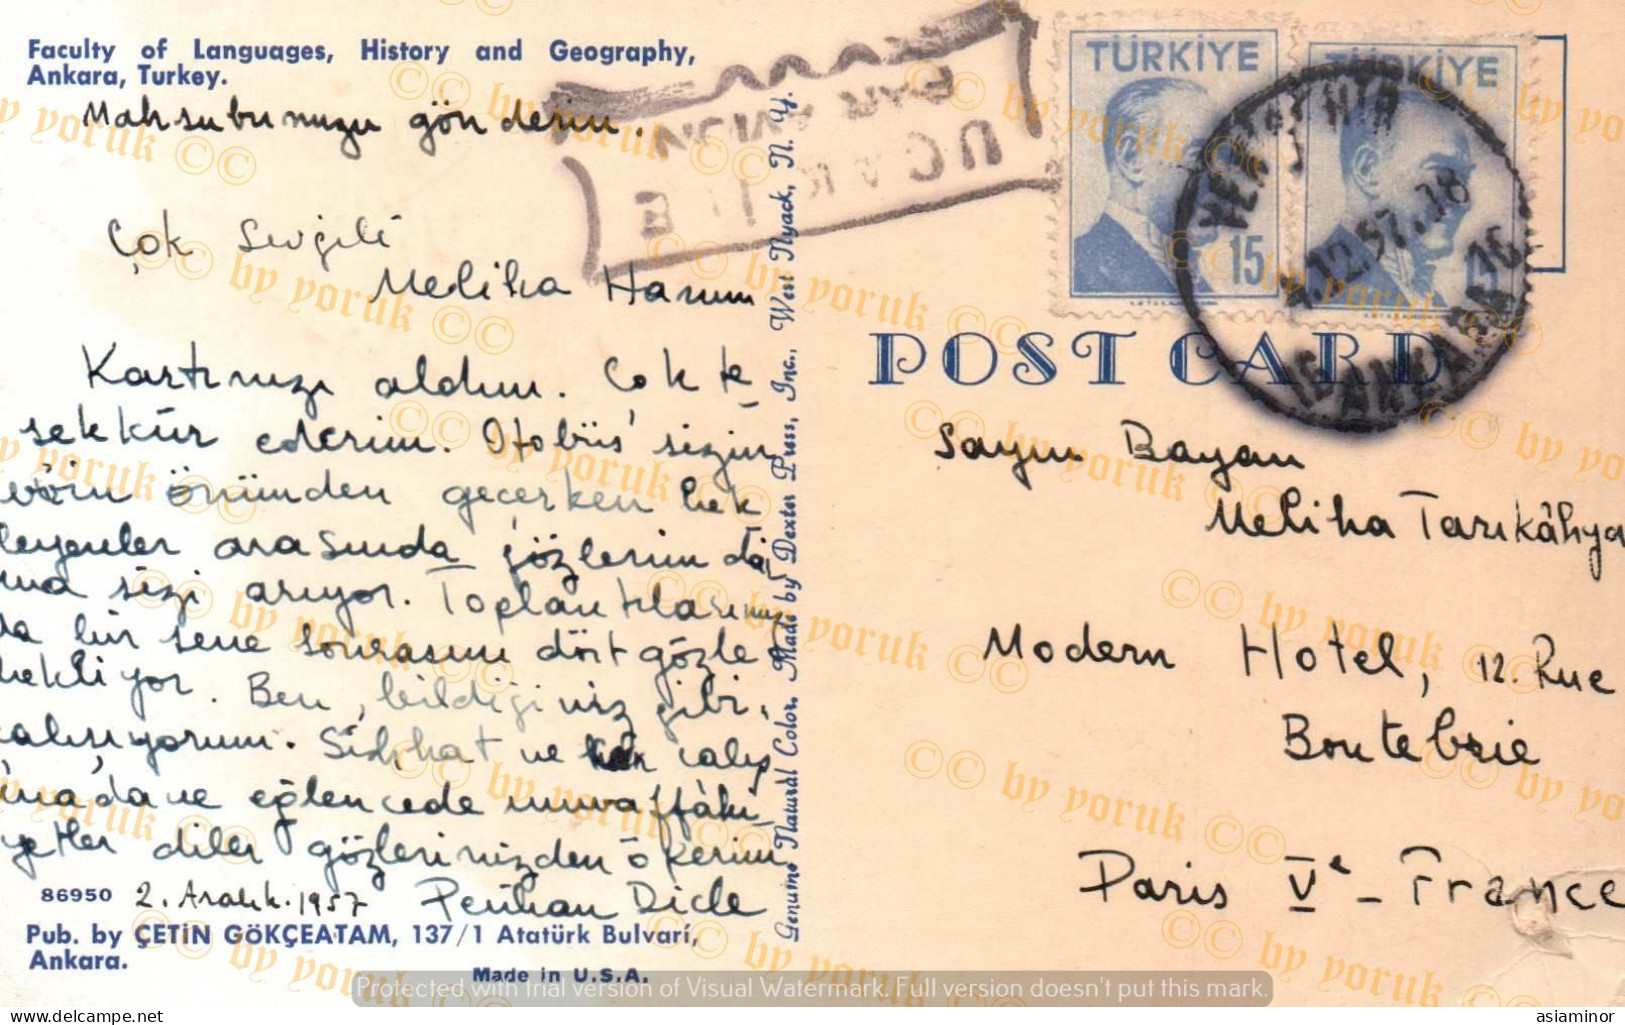 Faculty of Languages, History and Geography,
Ankara, Turkey.
Mahsubunuzu gönderin.
Çok Sevgili
Meliha Hanım
Kartınızı aldım. Çok te
şekkür ederim. Otobüs sizin
evin önünden geçerken bek
leyenler arasında gözlerim dai
ma sizi arıyor. Toplantılarımız
da bir sene sonrasını dört gözle
bekliyor. Ben, bildiğiniz gibi,
çalışıyorum. Sıhhat ve çalış
mada ve eğlencede muvaffaki-
yetler diler gözlerinizden öperim
2. Aralık. 1957 Perihan Dicle
86950
Pub. by ÇETİN GÖKÇEATAM, 137/1 Atatürk Bulvari,
Ankara.
Made in U.S.A.
Genuine Natural Color. Made by Dexter Press, Inc., West Nyack, N. Y.
UÇAK İLE
PAR AVION
TÜRKİYE
15
TÜRKİYE
15
YENİŞEHİR
.12.57.-18
16 ANKARA 16
POST CARD
Sayın Bayan
Meliha Tarıkâhya
Modern Hotel, 12. Rue
Boutebrie
Paris Ve - France
©© by yoruk ©©
Protected with trial version of Visual Watermark. Full version doesn't put this mark.
www.delcampe.net
asiaminor